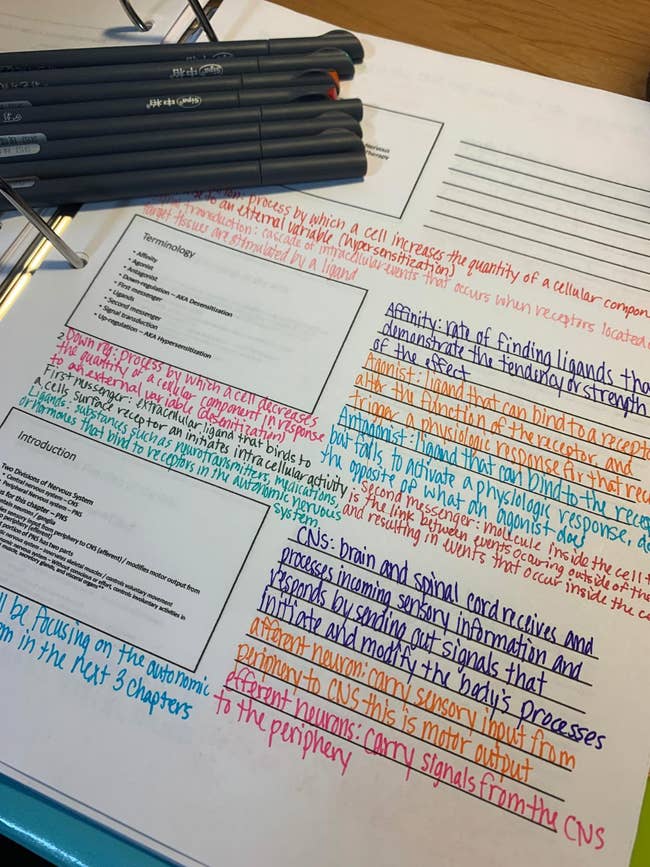 Sipa
Sipa
Sipa
Nervous
Therapy
process by which a cell increases the quantity of a cellular compon
to an external variable (hypersensitization)
transduction: cascade of intracellular events that occurs when receptors located
target tissues are stimulated by a ligand
Terminology
• Affinity
• Agonist
• Antagonist
• Down-regulation – AKA Desensitization
• First messenger
• Ligands
• Second messenger
• Signal transduction
• Up-regulation – AKA Hypersensitization
Down reg: process by which a cell decreases
the quantity of a cellular component in response
to an external variable (desenitization)
First messenger: extracellular ligand that binds to
a cells surface receptor an initiates intracellular activity
Ligands: substances such as neurotransmitters, medications,
or hormones that bind to receptors in the autonomic nervous
system.
Affinity: rate of finding ligands tha
demonstrate the tendency or strength
of the effect
Agonist: ligand that can bind to a recepto
alter the function of the receptor and
trigger a physiologic response
Antagonist: ligand that can bind to the rece
but fails to activate a physiologic response,
the opposite of what an agonist does
Second messenger: molecule inside the cell
is the link between events ocurring outside of the
and resulting in events that occur inside the ce
Introduction
Two Divisions of Nervous System
• Central nervous system – CNS
• Peripheral Nervous system – PNS
for this chapter – PNS
neurons/ ganglia
input from periphery to CNS (afferent) / modifies motor output from
periphery (efferent)
portion of PNS has two parts
nervous system – innervates skeletal muscles/ controls voluntary movement
nervous system – Without conscious or effort, controls involuntary activities in
muscle, secretory glands, and visceral organs
be focusing on the autonomic
in the next 3 chapters
CNS: brain and spinal cord receives and
processes incoming sensory information and
responds by sending out signals that
initiate and modify the body's processes
afferent neuron: carry sensory input from
periphery to CNS this is motor output
efferent neurons: carry signals from the CNS
to the periphery